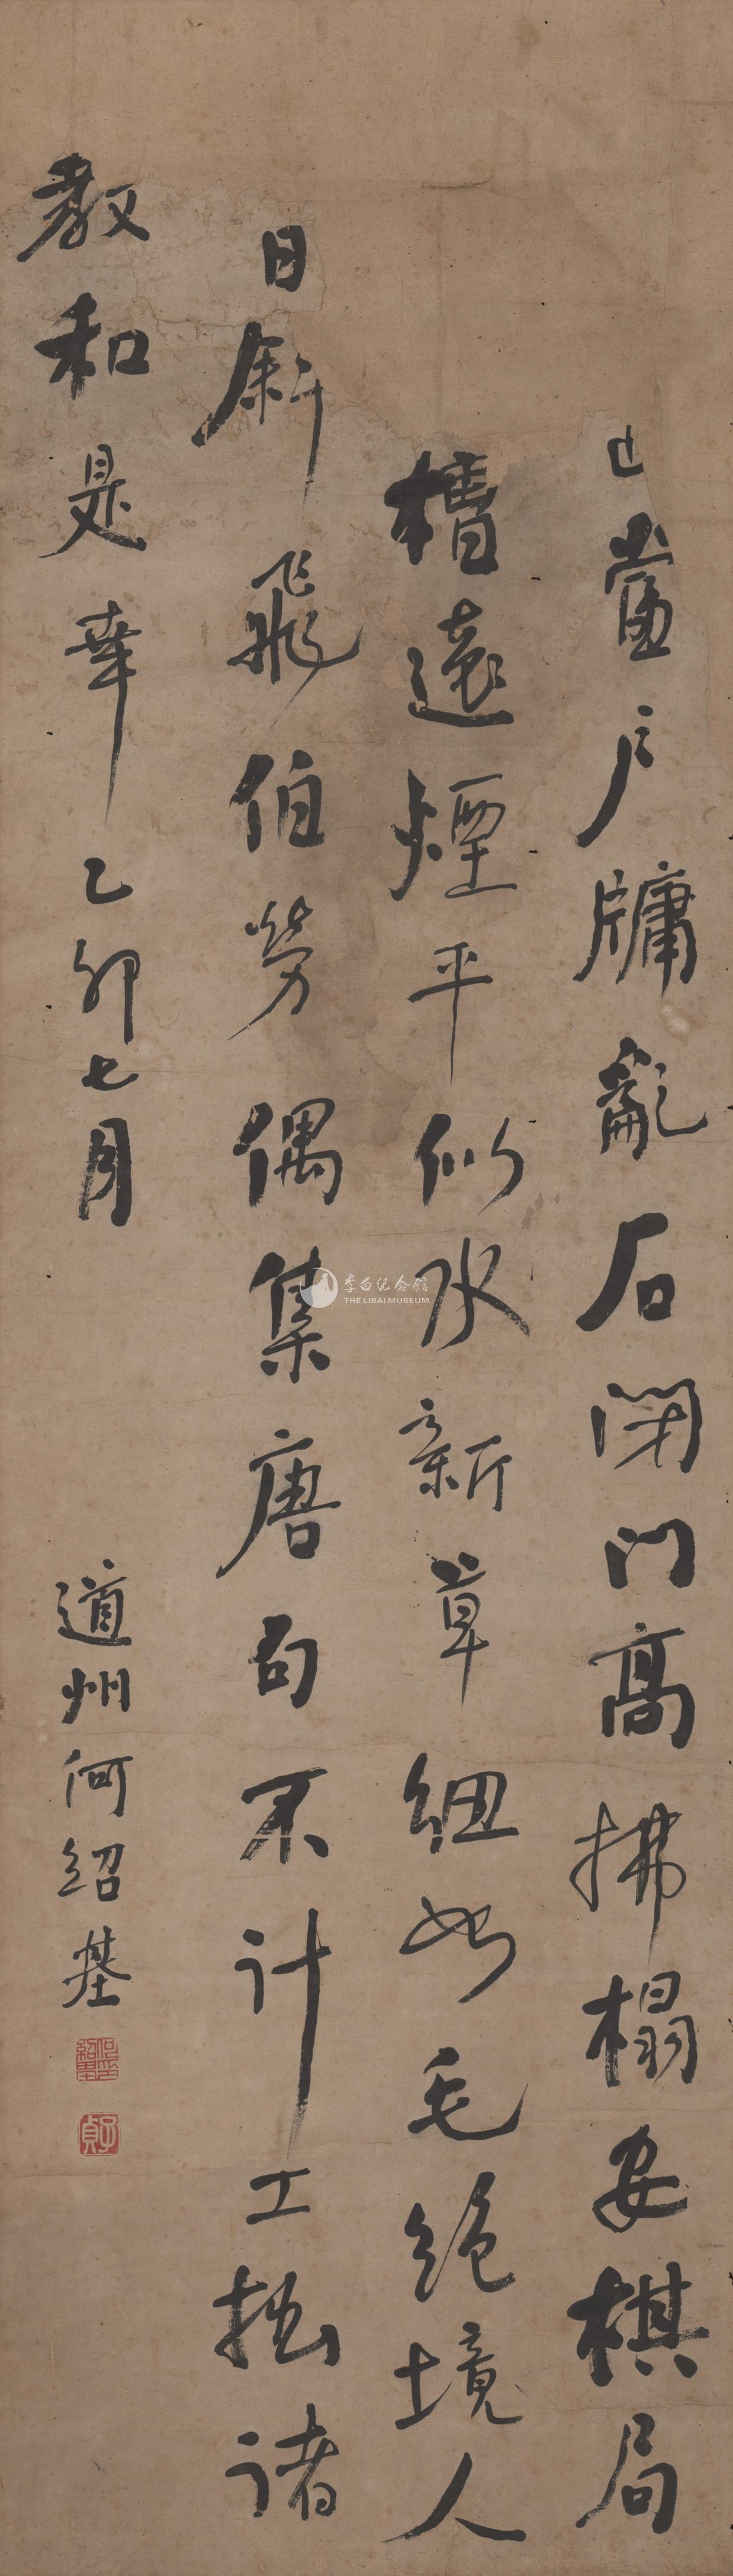 當戶牖亂石閉門高拂榻安棋局
槽遠煙平似水新草細如毛絕境人
日斜飛伯勞偶集唐句不計工拙諸
教和是幸乙卯七月 道州何紹基
何紹基印
子貞
李白纪念馆
THE LIBAI MUSEUM